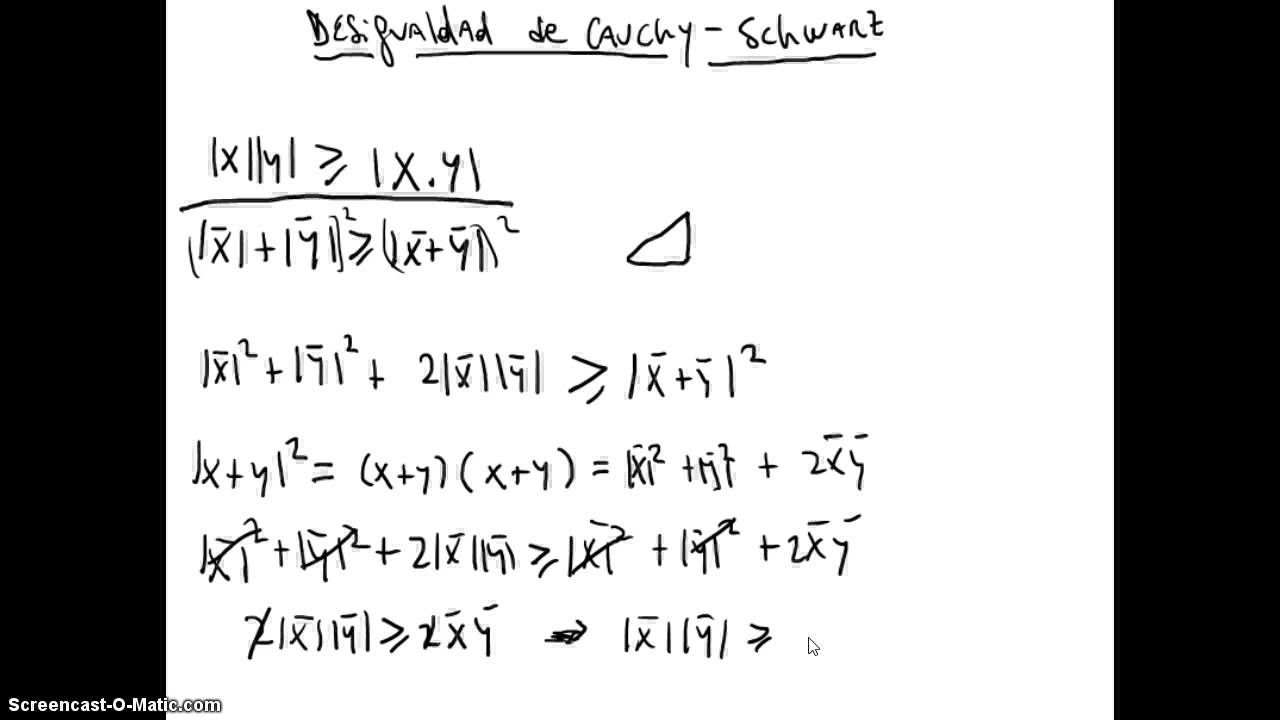 Desigualdad de Cauchy - Schwarz
|x||y| ≥ |x.y|
(|x̄| + |ȳ|)² ≥ (|x̄+ȳ|)²
|x̄|² + |ȳ|² + 2|x̄||ȳ| ≥ |x̄+ȳ|²
|x+y|² = (x+y)(x+y) = |x̄|² + |ȳ|² + 2x̄ȳ
|x̄|² + |ȳ|² + 2|x̄||ȳ| ≥ |x̄|² + |ȳ|² + 2x̄ȳ
2|x̄||ȳ| ≥ 2x̄ȳ ⇒ |x̄||ȳ| ≥
Screencast-O-Matic.com